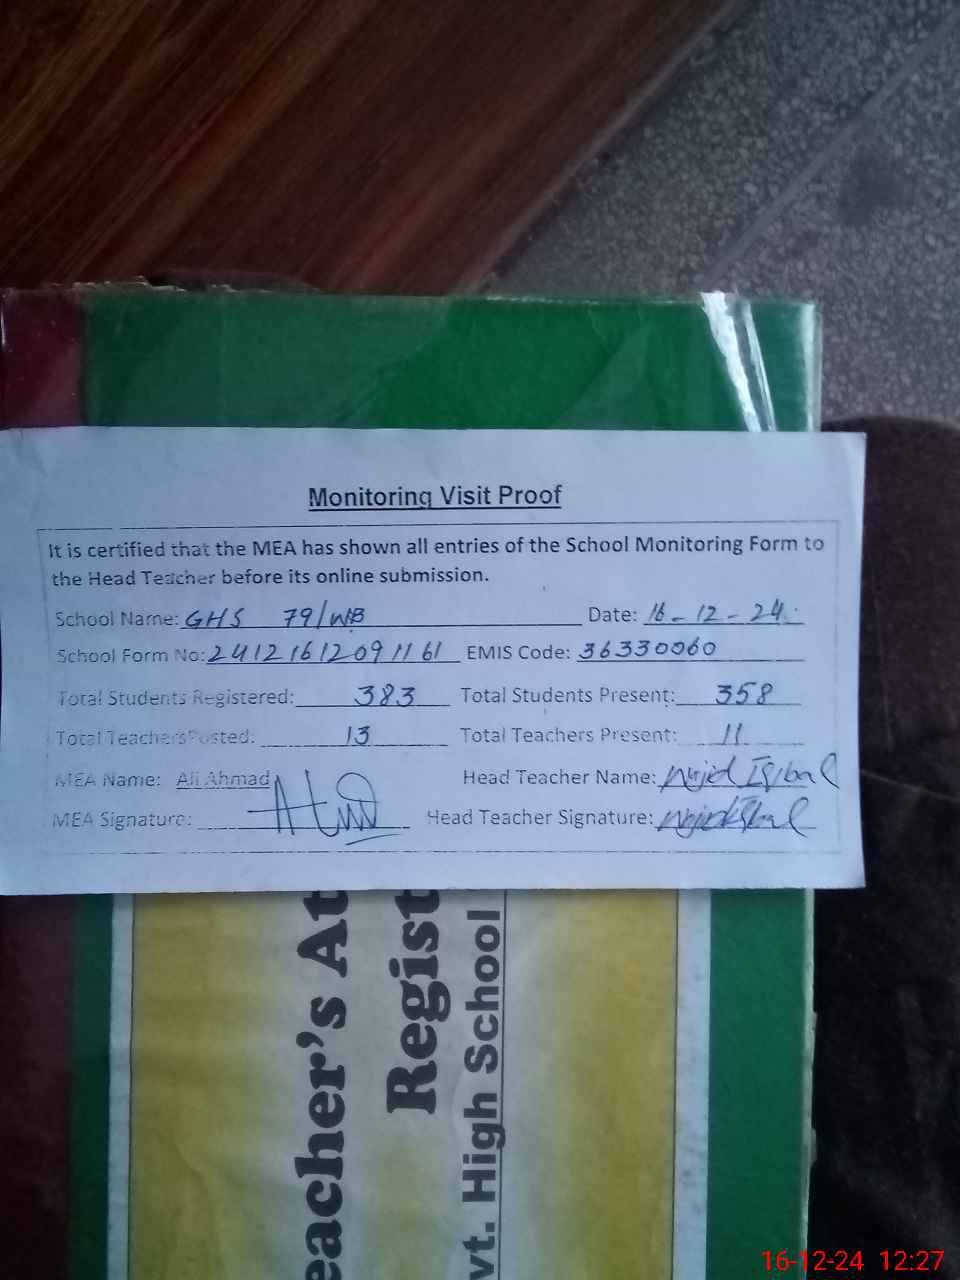 Monitoring Visit Proof
It is certified that the MEA has shown all entries of the School Monitoring Form to
the Head Teacher before its online submission.
School Name: GHS 79/WB Date: 16-12-24
School Form No: 24121612091161 EMIS Code: 36330060
Total Students Registered: 383 Total Students Present: 358
Total Teachers Posted: 13 Total Teachers Present: 11
MEA Name: Ali Ahmad Head Teacher Name: Wajid Iqbal
MEA Signature: Head Teacher Signature: Wajid Iqbal
eacher's At
Regist
vt. High School
16-12-24 12:27